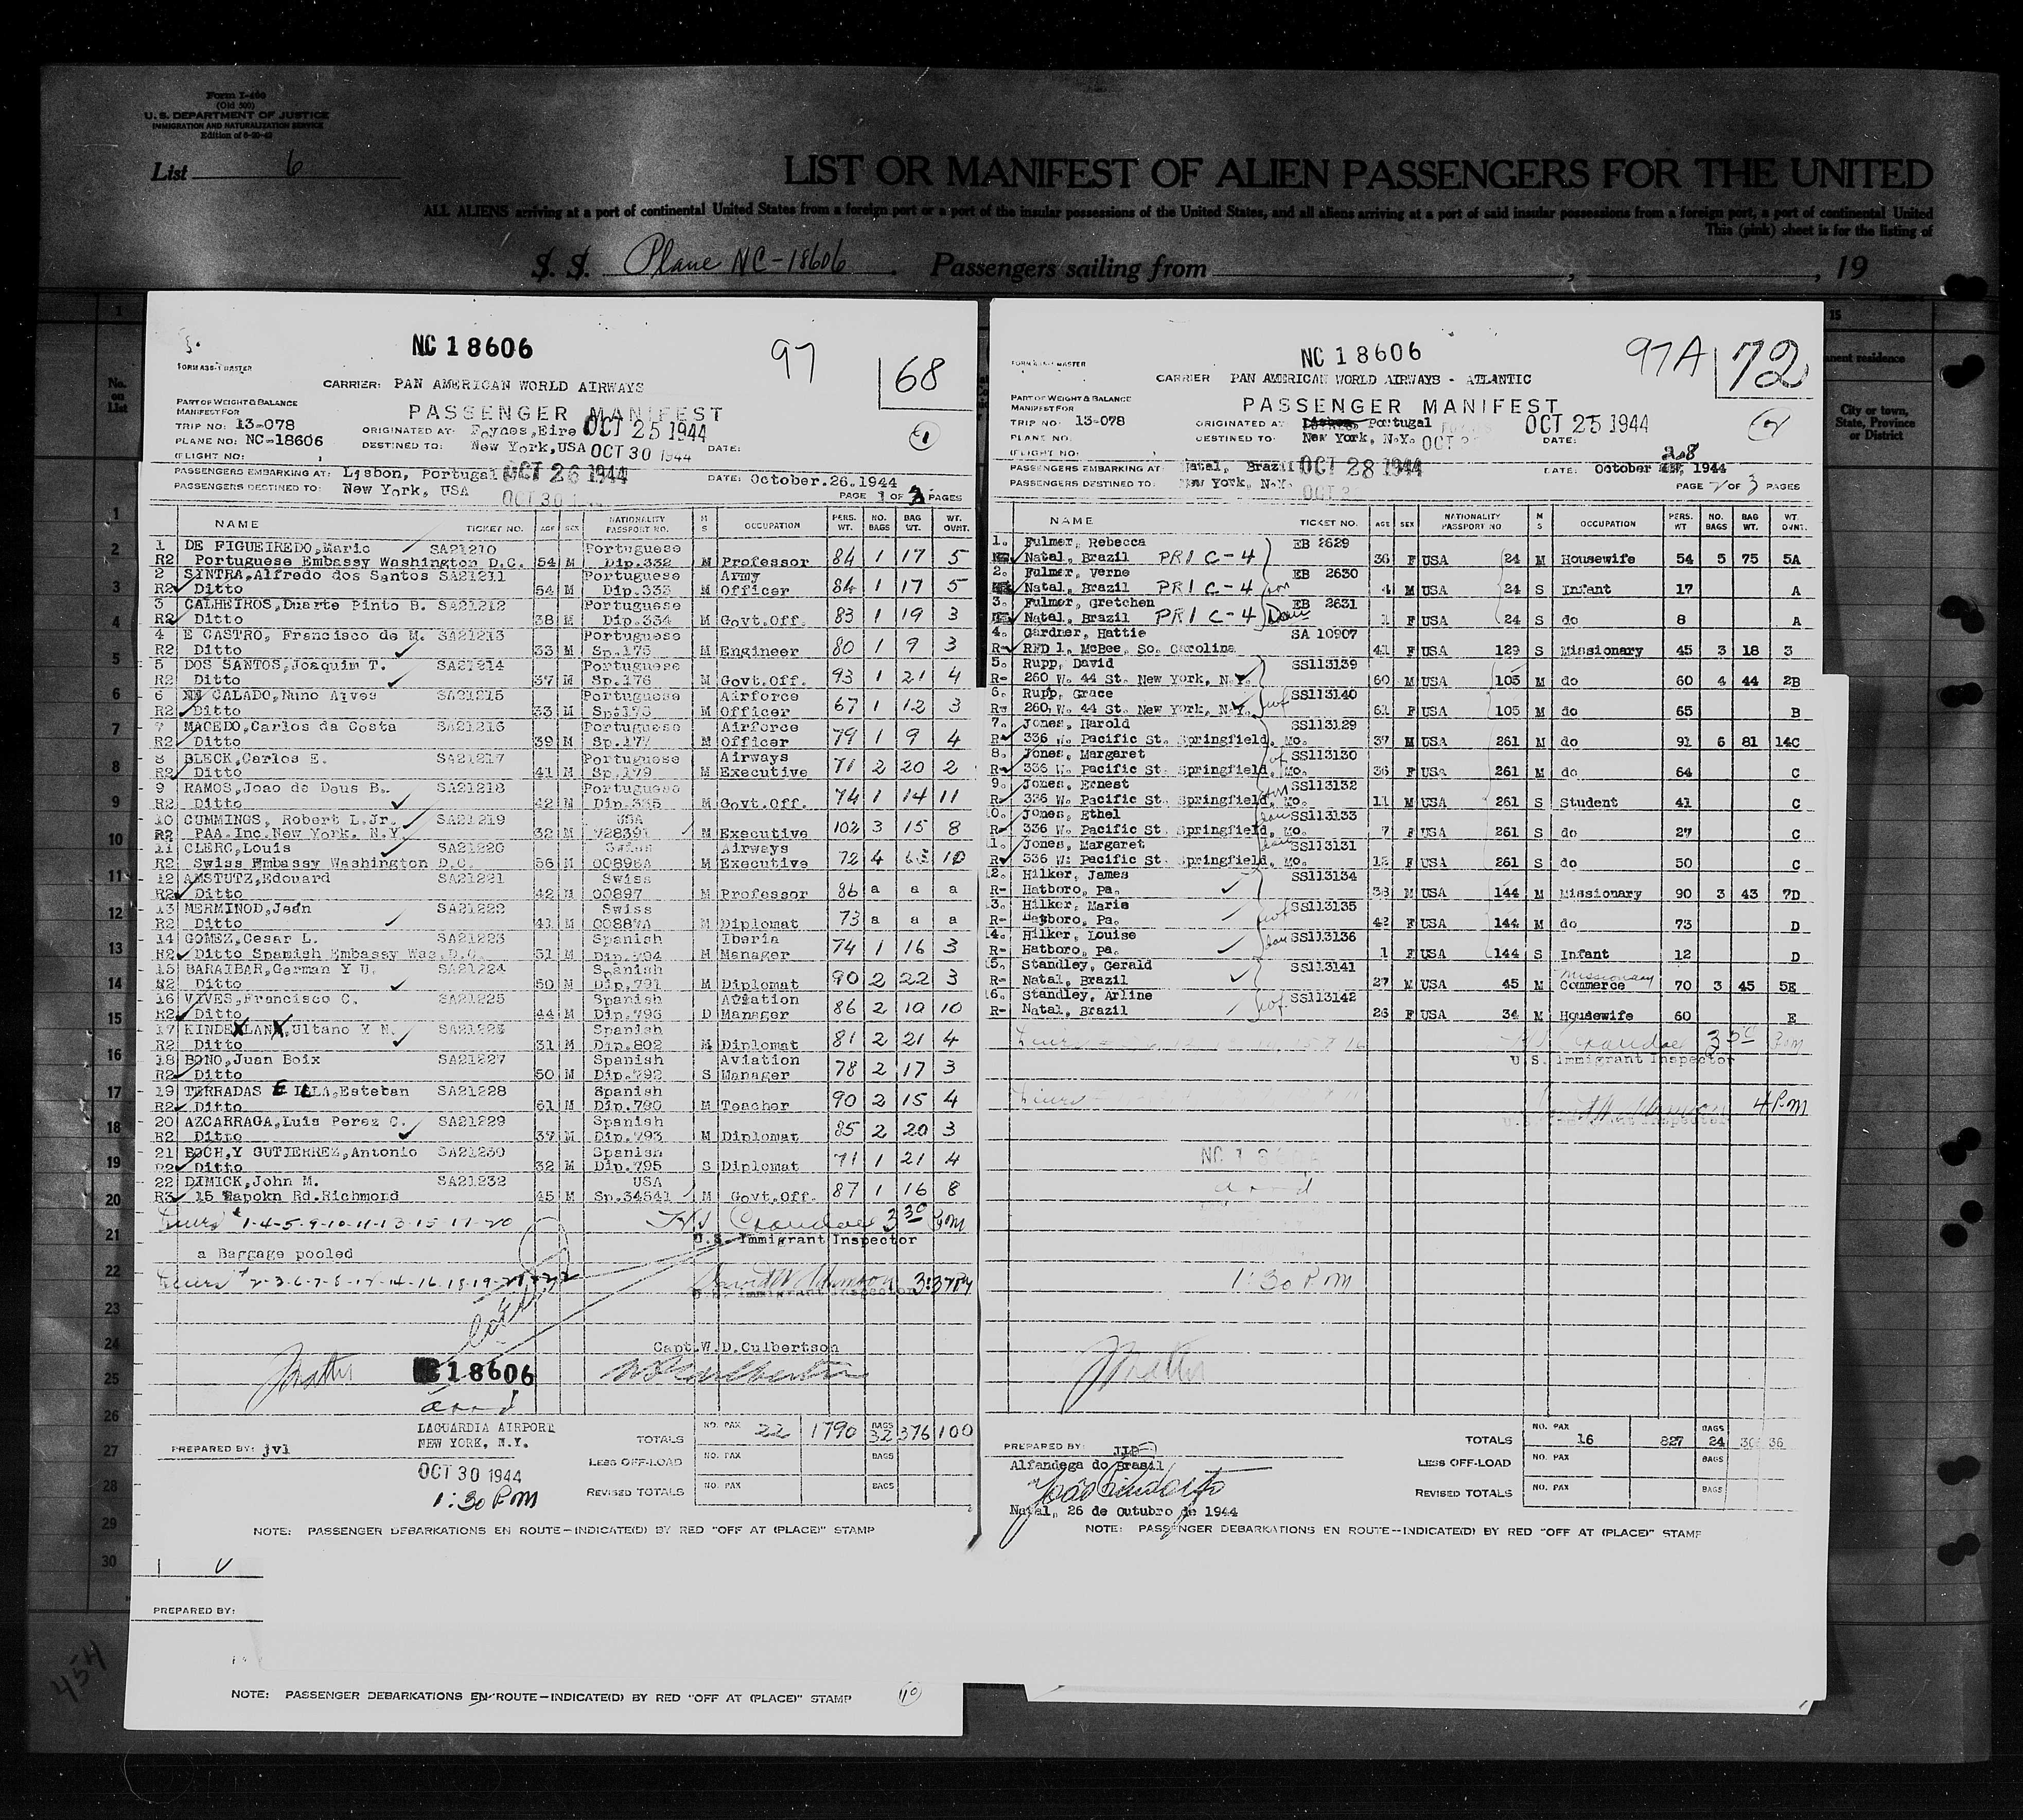 Form I-466
(Old 500)
U. S. DEPARTMENT OF JUSTICE
IMMIGRATION AND NATURALIZATION SERVICE
List 6
LIST OR MANIFEST OF ALIEN PASSENGERS FOR THE UNITED
ALL ALIENS arriving at a port of continental United States from a foreign port or a port of the insular possessions of the United States, and all aliens arriving at a port of said insular possessions from a foreign port, a port of continental United
This (pink) sheet is for the listing of
S. S. Plane NC-18606 Passengers sailing from , , 19
No. on List
NC 18606 97 68
CARRIER: PAN AMERICAN WORLD AIRWAYS
PART OF WEIGHT & BALANCE
MANIFEST FOR
PASSENGER MANIFEST
TRIP NO: 13-078 ORIGINATED AT: Foynes, Eire OCT 25 1944 1
PLANE NO: NC-18606 DESTINED TO: New York, USA OCT 30 1944 DATE:
(FLIGHT NO:
PASSENGERS EMBARKING AT: Lisbon, Portugal OCT 26 1944 DATE: October.26.1944
PASSENGERS DESTINED TO: New York, USA OCT 30 PAGE 1 OF 3 PAGES
NAME TICKET NO. AGE SEX NATIONALITY PASSPORT NO. M S OCCUPATION PERS. WT. NO. BAGS BAG WT. WT. OVNT.
1 DE FIGUEIREDO,Mario SA21210 Portuguese
R2 Portuguese Embassy Washington D.C. 54 M Dip.332 M Professor 84 1 17 5
2 SINTRA,Alfredo dos Santos SA21211 Portuguese Army
R2 Ditto 54 M Dip.333 M Officer 84 1 17 5
3 CALHEIROS,Duarte Pinto B. SA21212 Portuguese
R2 Ditto 38 M Dip.334 M Govt.Off. 83 1 19 3
4 E CASTRO, Francisco de M. SA21213 Portuguese
R2 Ditto 33 M Sp.175 M Engineer 80 1 9 3
5 DOS SANTOS,Joaquim T. SA21214 Portuguese
R2 Ditto 37 M Sp.176 M Govt.Off. 93 1 21 4
6 CALADO,Nuno Aives SA21215 Portuguese Airforce
R2 Ditto 33 M Sp.173 M Officer 67 1 12 3
7 MACEDO,Carlos da Costa SA21216 Portuguese Airforce
R2 Ditto 39 M Sp.177 M Officer 79 1 9 4
8 BLECK,Carlos E. SA21217 Portuguese Airways
R2 Ditto 41 M Sp.179 M Executive 71 2 20 2
9 RAMOS,Joao de Deus B. SA21218 Portuguese
R2 Ditto 42 M Dip.335 M Govt.Off. 74 1 14 11
10 CUMMINGS, Robert L.Jr. SA21219 USA
R2 PAA.Inc.New York. N.Y. 32 M 728391 M Executive 102 3 15 8
11 CLERC,Louis SA21220 Swiss Airways
R2 Swiss Embassy Washington D.C. 56 M 00896A M Executive 72 4 10
12 AMSTUTZ,Edouard SA21221 Swiss
R2 Ditto 42 M 00897 M Professor 86 a a a
13 MERMINOD,Jean SA21222 Swiss
R2 Ditto 41 M 00887A M Diplomat 73 a a a
14 GOMEZ,Cesar L. SA21223 Spanish Iberia
R2 Ditto Spanish Embassy Was.D.C. 51 M Dip.794 M Manager 74 1 16 3
15 BARAIBAR,German Y U. SA21224 Spanish
R2 Ditto 50 M Dip.791 M Diplomat 90 2 22 3
16 VIVES,Francisco C. SA21225 Spanish Aviation
R2 Ditto 44 M Dip.796 D Manager 86 2 10 10
17 KINDELAN,Ultano Y N. Spanish
R2 Ditto 31 M Dip.802 M Diplomat 81 2 21 4
18 BONO,Juan Boix SA21227 Spanish Aviation
R2 Ditto 50 M Dip.792 S Manager 78 2 17 3
19 TERRADAS E ILLA,Esteban SA21228 Spanish
R2 Ditto 61 M Dip.790 M Teacher 90 2 15 4
20 AZCARRAGA,Luis Perez C. SA21229 Spanish
R2 Ditto 37 M Dip.793 M Diplomat 85 2 20 3
21 BOCH,Y GUTIERREZ,Antonio SA21230 Spanish
R2 Ditto 32 M Dip.795 S Diplomat 71 1 21 4
22 DIMICK,John M. SA21232 USA
R3 15 Wapokn Rd.Richmond 45 M Sp.34541 M Govt.Off. 87 1 16 8
1-4-5-9-10-11-13-15-17-20 3 30 P.M
U.S. Immigrant Inspector
a Baggage pooled
2-3-6-7-8-12-14-16-18-19-21-22 3:37PM
U.S. Immigrant Inspector
Capt.W.D.Culbertson
18606
LAGUARDIA AIRPORT
NEW YORK, N.Y.
TOTALS NO. PAX 22 1790 BAGS 32 376 100
PREPARED BY: jvl
LESS OFF-LOAD NO. PAX BAGS
OCT 30 1944
REVISED TOTALS NO. PAX BAGS
1:30 P.M
NOTE: PASSENGER DEBARKATIONS EN ROUTE—INDICATE(D) BY RED "OFF AT (PLACE)" STAMP
PREPARED BY:
NOTE: PASSENGER DEBARKATIONS EN ROUTE—INDICATE(D) BY RED "OFF AT (PLACE)" STAMP
454
NC 18606 97A 72
CARRIER PAN AMERICAN WORLD AIRWAYS - ATLANTIC
PART OF WEIGHT & BALANCE
MANIFEST FOR
PASSENGER MANIFEST
TRIP NO: 13-078 ORIGINATED AT Lisbon, Portugal OCT 25 1944 2
PLANE NO. DESTINED TO: New York, N.Y. OCT DATE:
(FLIGHT NO:
PASSENGERS EMBARKING AT: Natal, Brazil OCT 28 1944 DATE: October 28 1944
PASSENGERS DESTINED TO: New York, N.Y. PAGE 2 OF 3 PAGES
NAME TICKET NO. AGE SEX NATIONALITY PASSPORT NO M S OCCUPATION PERS. WT NO. BAGS BAG WT. WT OVNT.
1. Fulmer, Rebecca EB 2629
Natal, Brazil PRI C-4 36 F USA 24 M Housewife 54 5 75 5A
2. Fulmer, Verne EB 2630
Natal, Brazil PRI C-4 son 4 M USA 24 S Infant 17 A
3. Fulmer, Gretchen EB 2631
Natal, Brazil PRI C-4 Dau 1 F USA 24 S do 8 A
4. Gardner, Hattie SA 10907
R- RFD 1, McBee, So. Carolina 41 F USA 129 S Missionary 45 3 18 3
5. Rupp, David SS113139
R- 260 W. 44 St. New York, N.Y. 60 M USA 105 M do 60 4 44 2B
6. Rupp, Grace SS113140
R- 260 W. 44 St. New York, N.Y. wf 61 F USA 105 M do 65 B
7. Jones, Harold SS113129
R- 336 W. Pacific St. Springfield, Mo. 37 M USA 261 M do 91 6 81 14C
8. Jones, Margaret SS113130
R- 336 W. Pacific St. Springfield, Mo. 36 F USA 261 M do 64 C
9. Jones, Ernest SS113132
R- 336 W. Pacific St. Springfield, Mo. 11 M USA 261 S Student 41 C
0. Jones, Ethel SS113133
R- 336 W. Pacific St. Springfield, Mo. 7 F USA 261 S do 27 C
1. Jones, Margaret SS113131
R- 336 W. Pacific St. Springfield, Mo. 12 F USA 261 S do 50 C
2. Hilker, James SS113134
R- Hatboro, Pa. 38 M USA 144 M Missionary 90 3 43 7D
3. Hilker, Marie SS113135
R- Hatboro, Pa. wf 42 F USA 144 M do 73 D
4. Hilker, Louise SS113136
R- Hatboro, Pa. dau 1 F USA 144 S Infant 12 D
5. Standley, Gerald SS113141 Missionary
R- Natal, Brazil 27 M USA 45 M Commerce 70 3 45 5E
6. Standley, Arline SS113142
R- Natal, Brazil wf 26 F USA 34 M Housewife 60 E
U.S. Immigrant Inspector
4 P.M
1:30 P.M
TOTALS NO. PAX 16 827 BAGS 24 36
PREPARED BY:
Alfandega do Brasil
LESS OFF-LOAD NO. PAX BAGS
REVISED TOTALS NO. PAX BAGS
Natal, 26 de Outubro de 1944
NOTE: PASSENGER DEBARKATIONS EN ROUTE—INDICATE(D) BY RED "OFF AT (PLACE)" STAMP
15
City or town, State, Province or District